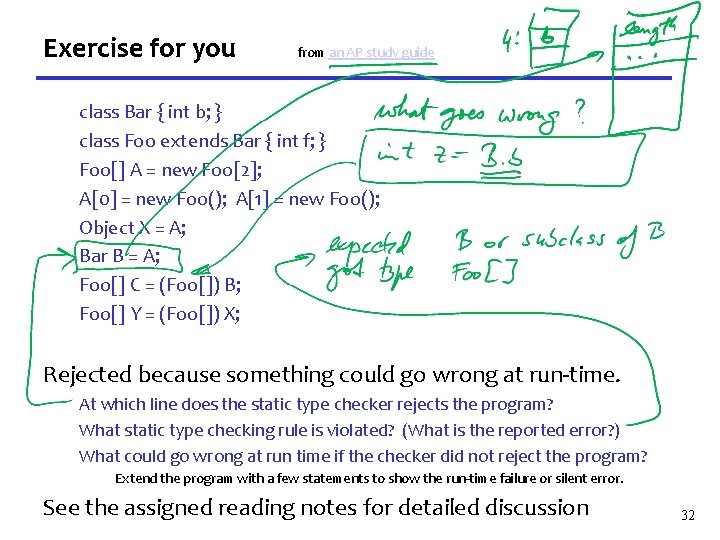 Exercise for you from an AP study guide
4: b
length
...
class Bar { int b; }
what goes wrong ?
class Foo extends Bar { int f; }
int z = B.b
Foo[] A = new Foo[2];
A[0] = new Foo(); A[1] = new Foo();
Object X = A;
expected B or subclass of B
Bar B = A;
got type Foo[]
Foo[] C = (Foo[]) B;
Foo[] Y = (Foo[]) X;
Rejected because something could go wrong at run-time.
At which line does the static type checker rejects the program?
What static type checking rule is violated? (What is the reported error?)
What could go wrong at run time if the checker did not reject the program?
Extend the program with a few statements to show the run-time failure or silent error.
See the assigned reading notes for detailed discussion
32